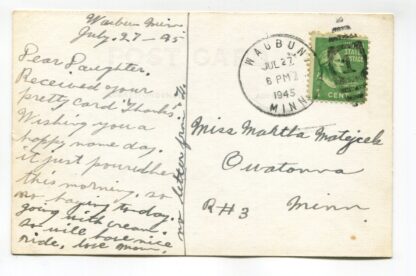 Waubun Minn.
July. 27 - 45
Dear Daughter.
Received your
pretty card Thanks.
Wishing you a
happy name day.
it just poured here
this morning. so
no haying to-day.
going with cream.
so will have nice
ride, love mom.
no letter from
WAUBUN
JUL 27
6 PM
1945
MINN.
STATES
POSTAGE
1 CENT 1
Miss Martha Matejcek
Owatonna
R#3 Minn